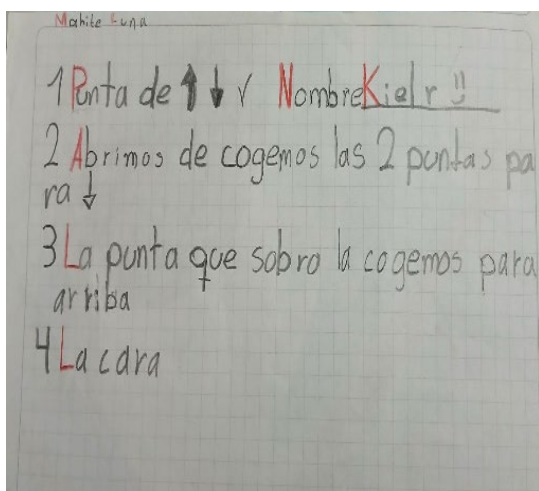 Mahite Luna
1 Punta de ⬆ ⬇ √ Nombre Kielr !!
2 Abrimos de cogemos las 2 puntas pa
ra ↓
3 La punta que sobro la cogemos para
arriba
4 La cara